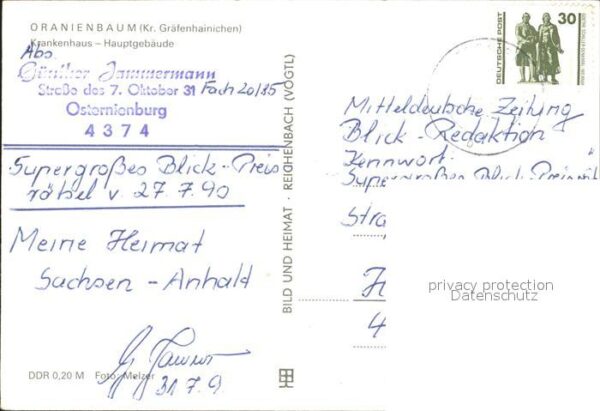 ORANIENBAUM (Kr. Gräfenhainichen)
Krankenhaus – Hauptgebäude
Abs.
Günther Jannermann
Straße des 7. Oktober 31 Fach 20/85
Osternienburg
4374
Supergroßes Blick-Preis
rätsel v. 27.7.90
Meine Heimat
Sachsen-Anhalt
31.7.9.
DDR 0,20 M Foto: Melzer
BILD UND HEIMAT · REICHENBACH (VOGTL)
DEUTSCHE POST
30
Mitteldeutsche Zeitung
Blick-Redaktion
Kennwort: "
Supergroßes Blick-Preisrät
Stra
H
4
privacy protection
Datenschutz